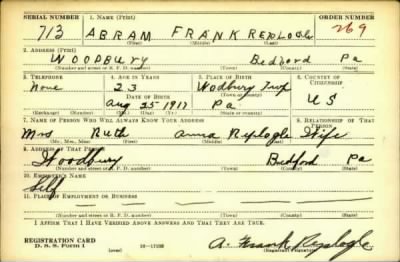 SERIAL NUMBER 1. NAME (Print) ORDER NUMBER
713 ABRAM FRANK REPLOGLE 269
(First) (Middle) (Last)
2. ADDRESS (Print)
WOODBURY Bedford Pa
(Number and street or R. F. D. number) (Town) (County) (State)
3. TELEPHONE 4. AGE IN YEARS 5. PLACE OF BIRTH 6. COUNTRY OF CITIZENSHIP
None 23 Wodbury Twp
DATE OF BIRTH (Town or county)
Aug 25 1917 Pa. U S
(Exchange) (Number) (Mo.) (Day) (Yr.) (State or country)
7. NAME OF PERSON WHO WILL ALWAYS KNOW YOUR ADDRESS 8. RELATIONSHIP OF THAT PERSON
Mrs Ruth Anna Replogle Wife
(Mr., Mrs., Miss) (First) (Middle) (Last)
9. ADDRESS OF THAT PERSON
Woodbury Bedford Pa
(Number and street or R. F. D. number) (Town) (County) (State)
10. EMPLOYER'S NAME
Self
11. PLACE OF EMPLOYMENT OR BUSINESS
(Number and street or R. F. D. number) (Town) (County) (State)
I AFFIRM THAT I HAVE VERIFIED ABOVE ANSWERS AND THAT THEY ARE TRUE.
REGISTRATION CARD
D. S. S. Form 1 A. Frank Replogle
(Registrant's signature)